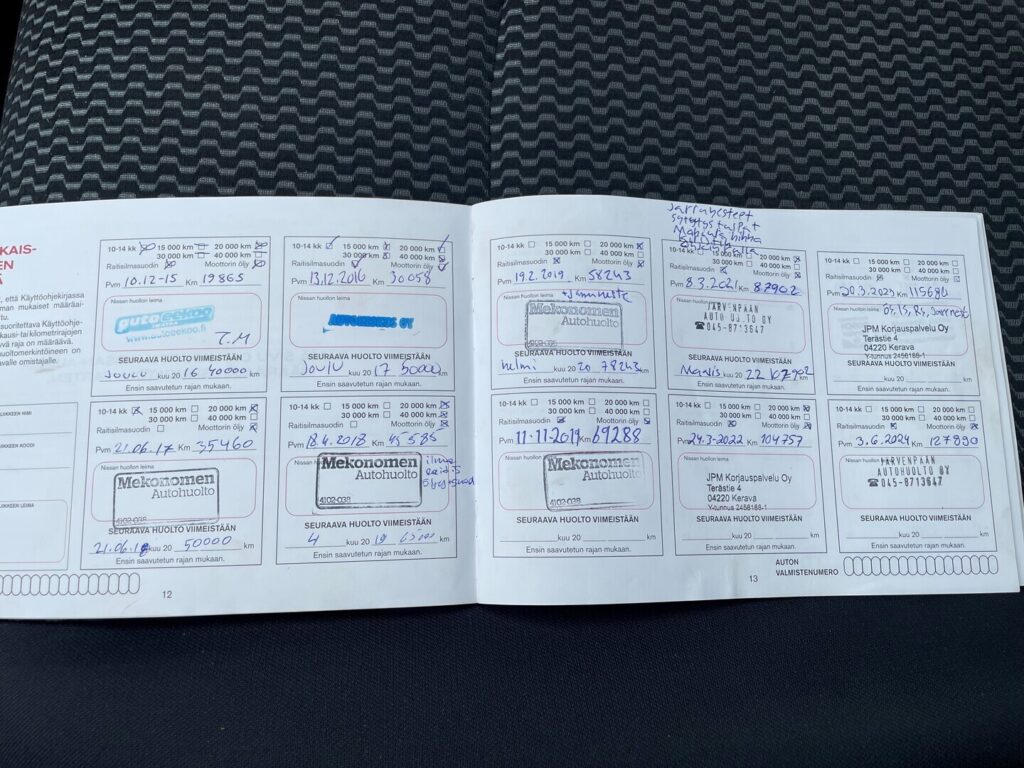 KAIS-
EN
A
, että Käyttöohjekirjassa
man mukaiset määräai-
tu.
suoritettava Käyttöohje-
kausi- tai kilometrirajojen
vä raja on määräävä.
uoltomerkintöineen on
avalle omistajalle.
LIIKKEEN NIMI
LIIKKEEN KOODI
LIIKKEEN LEIMA
10-14 kk 15 000 km 20 000 km
30 000 km 40 000 km
Raitisilmasuodin Moottorin öljy
Pvm 10.12-15 Km 19865
Nissan huollon leima
www.autoeekoo.fi
T.M
SEURAAVA HUOLTO VIIMEISTÄÄN
Joulu kuu 20 16 40000 km
Ensin saavutetun rajan mukaan.
10-14 kk 15 000 km 20 000 km
30 000 km 40 000 km
Raitisilmasuodin Moottorin öljy
Pvm 13.12.2016 Km 30058
Nissan huollon leima
AUTOKESKUS OY
SEURAAVA HUOLTO VIIMEISTÄÄN
JOULU kuu 20 17 50000 km
Ensin saavutetun rajan mukaan.
10-14 kk 15 000 km 20 000 km
30 000 km 40 000 km
Raitisilmasuodin Moottorin öljy
Pvm 21.06.17 Km 35460
Nissan huollon leima
Mekonomen
Autohuolto
4102-038
SEURAAVA HUOLTO VIIMEISTÄÄN
21.06.18 kuu 20 50000 km
Ensin saavutetun rajan mukaan.
10-14 kk 15 000 km 20 000 km
30 000 km 40 000 km
Raitisilmasuodin Moottorin öljy
Pvm 18.4.2018 Km 45585
Nissan huollon leima
Mekonomen
Autohuolto
4102-038
SEURAAVA HUOLTO VIIMEISTÄÄN
4 kuu 20 19 65000 km
Ensin saavutetun rajan mukaan.
12
10-14 kk 15 000 km 20 000 km
30 000 km 40 000 km
Raitisilmasuodin Moottorin öljy
Pvm 19.2.2019 Km 58243
Nissan huollon leima
+ Jarruneste
Mekonomen
Autohuolto
SEURAAVA HUOLTO VIIMEISTÄÄN
helmi kuu 20 20 78243 km
Ensin saavutetun rajan mukaan.
Jarrunesteet
sytytystulpat
10-14 kk 15 000 km 20 000 km
30 000 km 40 000 km
Raitisilmasuodin Moottorin öljy
Pvm 8.3.2021 Km 87902
Nissan huollon leima
JÄRVENPÄÄN
AUTOHUOLTO OY
☎045-8713647
SEURAAVA HUOLTO VIIMEISTÄÄN
Maalis kuu 20 22 107902 km
Ensin saavutetun rajan mukaan.
10-14 kk 15 000 km 20 000 km
30 000 km 40 000 km
Raitisilmasuodin Moottorin öljy
Pvm 20.3.2023 Km 115684
Nissan huollon leima
JPM Korjauspalvelu Oy
Terästie 4
04220 Kerava
Y-tunnus 2456168-1
kuu 20 km
Ensin saavutetun rajan mukaan.
10-14 kk 15 000 km 20 000 km
30 000 km 40 000 km
Raitisilmasuodin Moottorin öljy
Pvm 11-11-2019 Km 69288
Nissan huollon leima
Mekonomen
Autohuolto
4102-038
SEURAAVA HUOLTO VIIMEISTÄÄN
kuu 20 km
Ensin saavutetun rajan mukaan.
10-14 kk 15 000 km 20 000 km
30 000 km 40 000 km
Raitisilmasuodin Moottorin öljy
Pvm 24.3-2022 Km 104757
Nissan huollon leima
JPM Korjauspalvelu Oy
Terästie 4
04220 Kerava
Y-tunnus 2456168-1
SEURAAVA HUOLTO VIIMEISTÄÄN
kuu 20 km
Ensin saavutetun rajan mukaan.
10-14 kk 15 000 km 20 000 km
30 000 km 40 000 km
Raitisilmasuodin Moottorin öljy
Pvm 3.6.2024 Km 127890
Nissan huollon leima
JÄRVENPÄÄN
AUTOHUOLTO OY
☎045-8713647
SEURAAVA HUOLTO VIIMEISTÄÄN
kuu 20 km
Ensin saavutetun rajan mukaan.
AUTON
VALMISTENUMERO
13